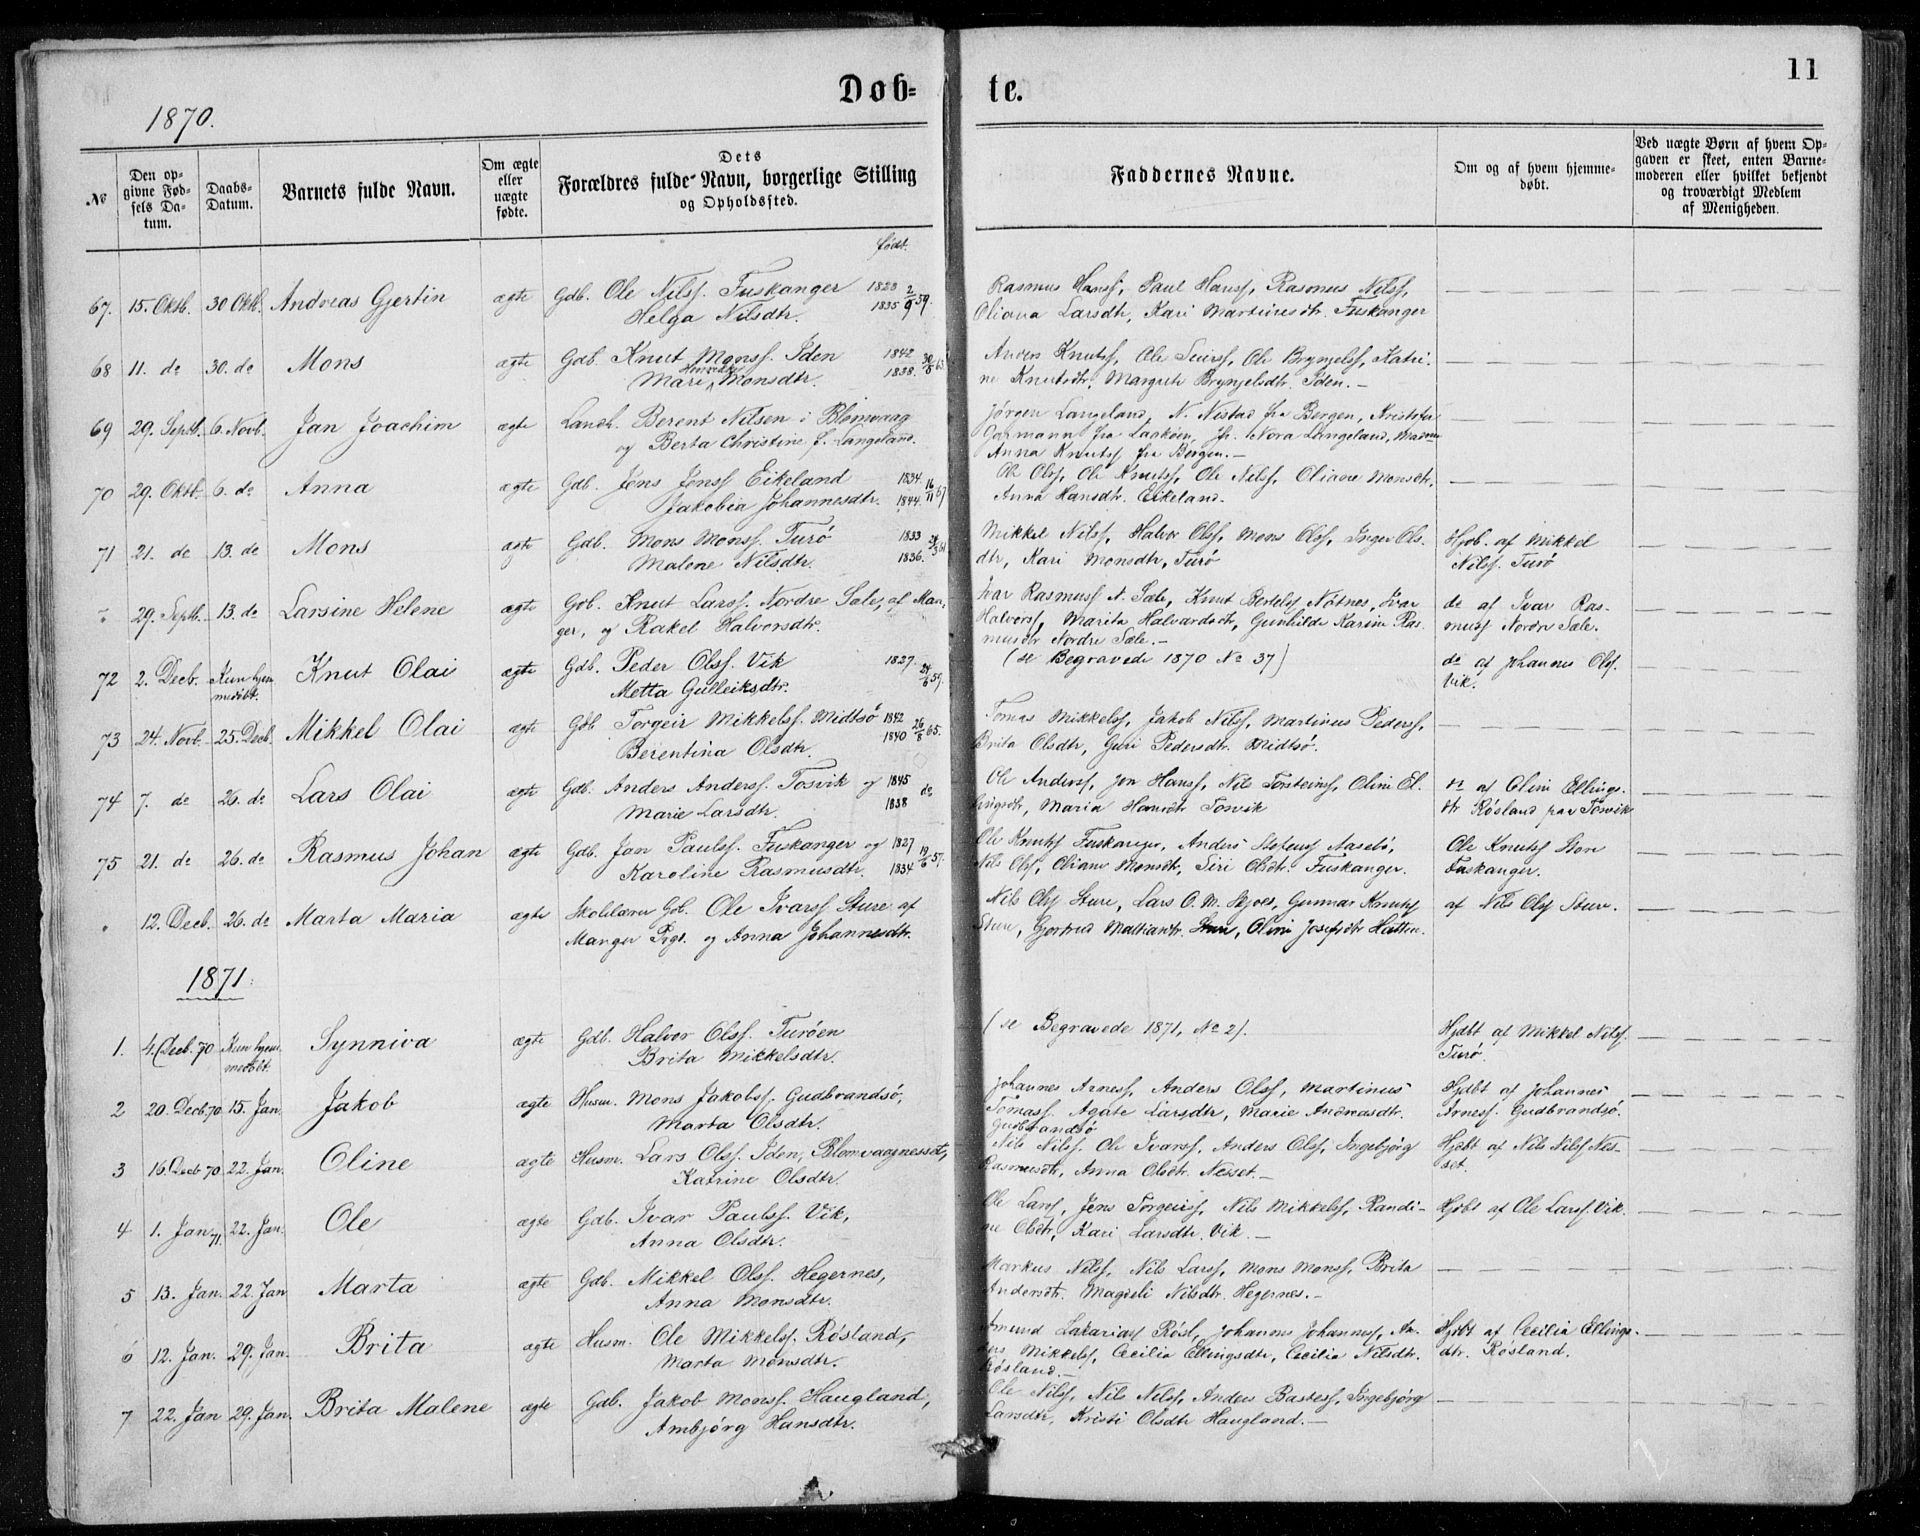 11
Døb= te.
1870.
№
Den op-
givne Fød-
sels Da-
tum.
Daabs-
Datum.
Barnets fulde Navn.
Om ægte
eller
uægte
fødte.
Dets
Forældres fulde Navn, borgerlige Stilling
og Opholdssted.
Faddernes Navne.
Om og af hvem hjemme-
døbt.
Ved uægte Børn af hvem Op-
gaven er skeet, enten Barne-
moderen eller hvilket bekjendt
og troværdigt Medlem
af Menigheden.
født.
67. 15. Oktb. 30 Oktb. Andreas Gjertin ægte Gdb. Ole Nilsf. Fuskanger 1823 2/9 59.
Helga Nilsdtr. 1835
Rasmus Hansf, Paul Hansf, Rasmus Nilsf,
Oliana Larsdtr, Kari Martinusdtr. Fuskanger
68 11. do 30. do Mons ægte Gdb. Knut Monsf. Iden 1842
Mari Monsdtr. 1838.
Anders Knutsf, Ole Seursf, Ole Brynjelsf, Katri-
ne Knutsdtr, Margrete Brynjelsdtr. Iden.-
69 29. Septb. 6. Novb. Jan Joachim ægte Landh. Berent Nilsen i Blomvaag
og Berta Christine f. Langeland.
Jørgen Langeland, N. Nistad fra Bergen, Kristofer
Gormann fra Laskøen, Jfr. Nora Langeland, Madm
Anna Knutsf fra Bergen.-
70 29. Oktb. 6. do Anna ægte Gdb. Jens Jensf Eikeland 1834. 16/11 67
Jakobia Johannesdtr. 1844.
Ole Olsf, Ole Knutsf, Ole Nilsf, Oliane Monsdtr,
Anna Hansdtr. Eikeland.
71 21. do 13. do Mons ægte Gdb. Mons Monsf. Turø 1833
Malene Nilsdtr. 1836.
Mikkel Nilsf, Halvor Olsf, Mons Olsf, Inger Ols-
dtr, Kari Monsdtr, Turø
Hjdb. af Mikkel
Nilsf. Turø
29. Septb. 13. do Larsine Helene ægte Gdb. Knut Larsf. Nordre Sæle, af Man-
ger, og Rakel Halvorsdtr.
Ivar Rasmusf N. Sæle, Knut Bertelsf Nøtnes, Ivar
Halvorsf, Marita Halvardsdtr, Gunhilde Karine Ras-
musdtr Nordre Sæle.-
do af Ivar Ras-
musf Nordre Sæle.
72 2. Decb. Kun hjem-
medøbt. Knut Olai ægte Gdb. Peder Olsf. Vik 1827.
Metta Gulleiksdtr.
(se Begravede 1870 No 37)
do af Johannes Olsf.
Vik.
73 24. Novb 25. Decb. Mikkel Olai ægte Gdb Torgeir Mikkelsf. Midtsø 1842 26/8 65.
Berentina Olsdtr. 1840
Tomas Mikkelsf, Jakob Nilsf, Martinus Pedersf,
Brita Olsdtr, Guri Pedersdtr. Midtsø.
74 7. do 26. do Lars Olai ægte Gdb. Anders Andersf. Tosvik og 1845 do
Marie Larsdtr. 1838
Ole Andersf, Jon Hansf, Nils Torsteinsf, Oline El-
lingsdtr, Maria Hansdtr Tosvik
af Oline Ellings-
dtr Røsland paa Tosvik
75 21. do 26. do Rasmus Johan ægte Gdb. Jan Paulsf. Fuskanger og 1827 19/6 57.
Karoline Rasmusdtr. 1834
Ole Knutsf Fuskanger, Anders Stefensf Aasebø,
Nils Olsf, Oliane Monsdtr, Siri Olsdtr. Fuskanger.
Ole Knutsf Store
Fuskanger.
12. Decb. 26. do Marta Maria ægte Skolelærer Gdb. Ole Ivarsf. Sture af
Manger Prgj. og Anna Johannesdtr.
Nils Olsf Sture, Lars O. M. Njøes, Gunnar Knutsf
Sture, Gjertrud Mattiasdtr. Sture, Oline Josefsdtr Hatten.
af Nils Olsf Sture.
1871.
1. 4. Decb. 70 Kun hjem-
medøbt. Synniva ægte Gdb. Halvor Olsf. Turøen
Brita Mikkelsdtr.
(se Begravede 1871, No 2).
Hjdbt af Mikkel Nilsf.
Turø.
2 20. Decb 70 15. Jan. Jakob ægte Husm. Mons Jakobsf. Gudbrandsø,
Marta Olsdtr.
Johannes Arnesf, Anders Olsf, Martinus
Tomasf. Agate Larsdtr, Marie Andreasdtr.
Gudbrandsø
Hjdbt af Johannes
Arnesf. Gudbrandsø.
3 16. Decb 70 22. Jan. Oline ægte Husm. Lars Olsf. Iden, Blomvaagnesset,
Katrine Olsdtr.
Nils Nilsf. Ole Ivarsf, Anders Olsf, Ingebjørg
Rasmusdtr, Anna Olsdtr. Nesset.-
Hjdbt af Nils Nilsf Nes-
set.
4 1. Jan 71. 22. Jan. Ole ægte Gdb. Ivar Paulsf. Vik,
Anna Olsdtr.
Ole Larsf, Jens Torgeirsf, Nils Mikkelsf, Randi-
ne Olsdtr, Kari Larsdtr. Vik.-
Hjdbt af Ole Larsf. Vik.
5 13. Jan. 22. Jan Marta ægte Gdb. Mikkel Olsf. Hegernes,
Anna Monsdtr.
Markus Nilsf, Nils Larsf, Mons Monsf, Brita
Andersdtr. Magdeli Nilsdtr. Hegernes.-
6 12. Jan. 29. Jan. Brita ægte Husm. Ole Mikkelsf. Røsland,
Marta Monsdtr.
Amund Zakariasf Røsl, Johannes Johannesf, An-
ders Mikkelsf, Cecilia Ellingsdtr, Cecilia Nilsdtr.
Røsland.-
Hjdbt af Cecilia Ellings-
dtr. Røsland.
7 22. Jan 29. Jan. Brita Malene ægte Gdb. Jakob Monsf. Haugland,
Ambjørg Hansdtr.
Ole Nilsf, Nils Nilsf, Anders Bastesf, Ingebjørg
Larsdtr, Kristi Olsdtr Haugland.-